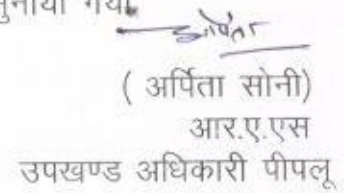 सुनाया गया
अर्पिता
( अर्पिता सोनी)
आर.ए.एस
उपखण्ड अधिकारी पीपलू